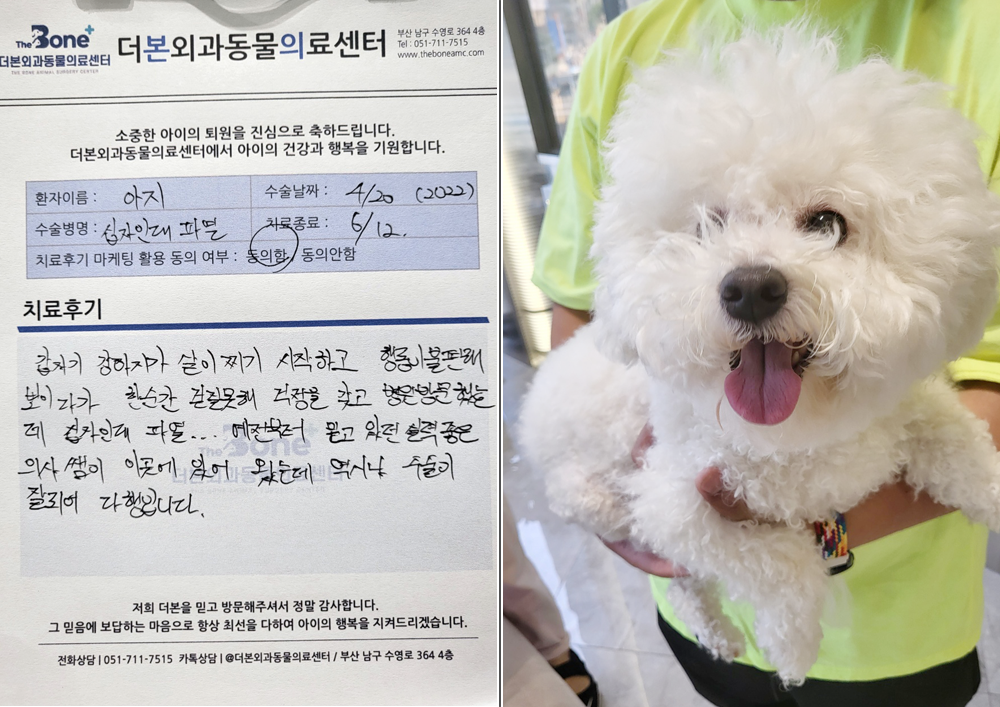 The Bone+
더본외과동물의료센터
THE BONE ANIMAL SURGERY CENTER
더본외과동물의료센터
부산 남구 수영로 364 4층
Tel : 051-711-7515
www.theboneamc.com
소중한 아이의 퇴원을 진심으로 축하드립니다.
더본외과동물의료센터에서 아이의 건강과 행복을 기원합니다.
환자이름 : 아지 수술날짜 : 4/20 (2022)
수술병명 : 십자인대 파열 치료종료 : 6/12.
치료후기 마케팅 활용 동의 여부 : 동의함, 동의안함
치료후기
갑자기 강아지가 살이 찌기 시작하고 행동이 불편해
보이다가 한순간 걷질못해 직장을 갖고 병원방문했는
데 십자인대 파열... 예전부터 믿고 있던 실력좋은
의사쌤이 이곳에 있어 왔는데 역시나 수술이
잘되어 다행입니다.
The Bone+
더본외과동물의료센터
저희 더본을 믿고 방문해주셔서 정말 감사합니다.
그 믿음에 보답하는 마음으로 항상 최선을 다하여 아이의 행복을 지켜드리겠습니다.
전화상담 | 051-711-7515 카톡상담 | @더본외과동물의료센터 / 부산 남구 수영로 364 4층